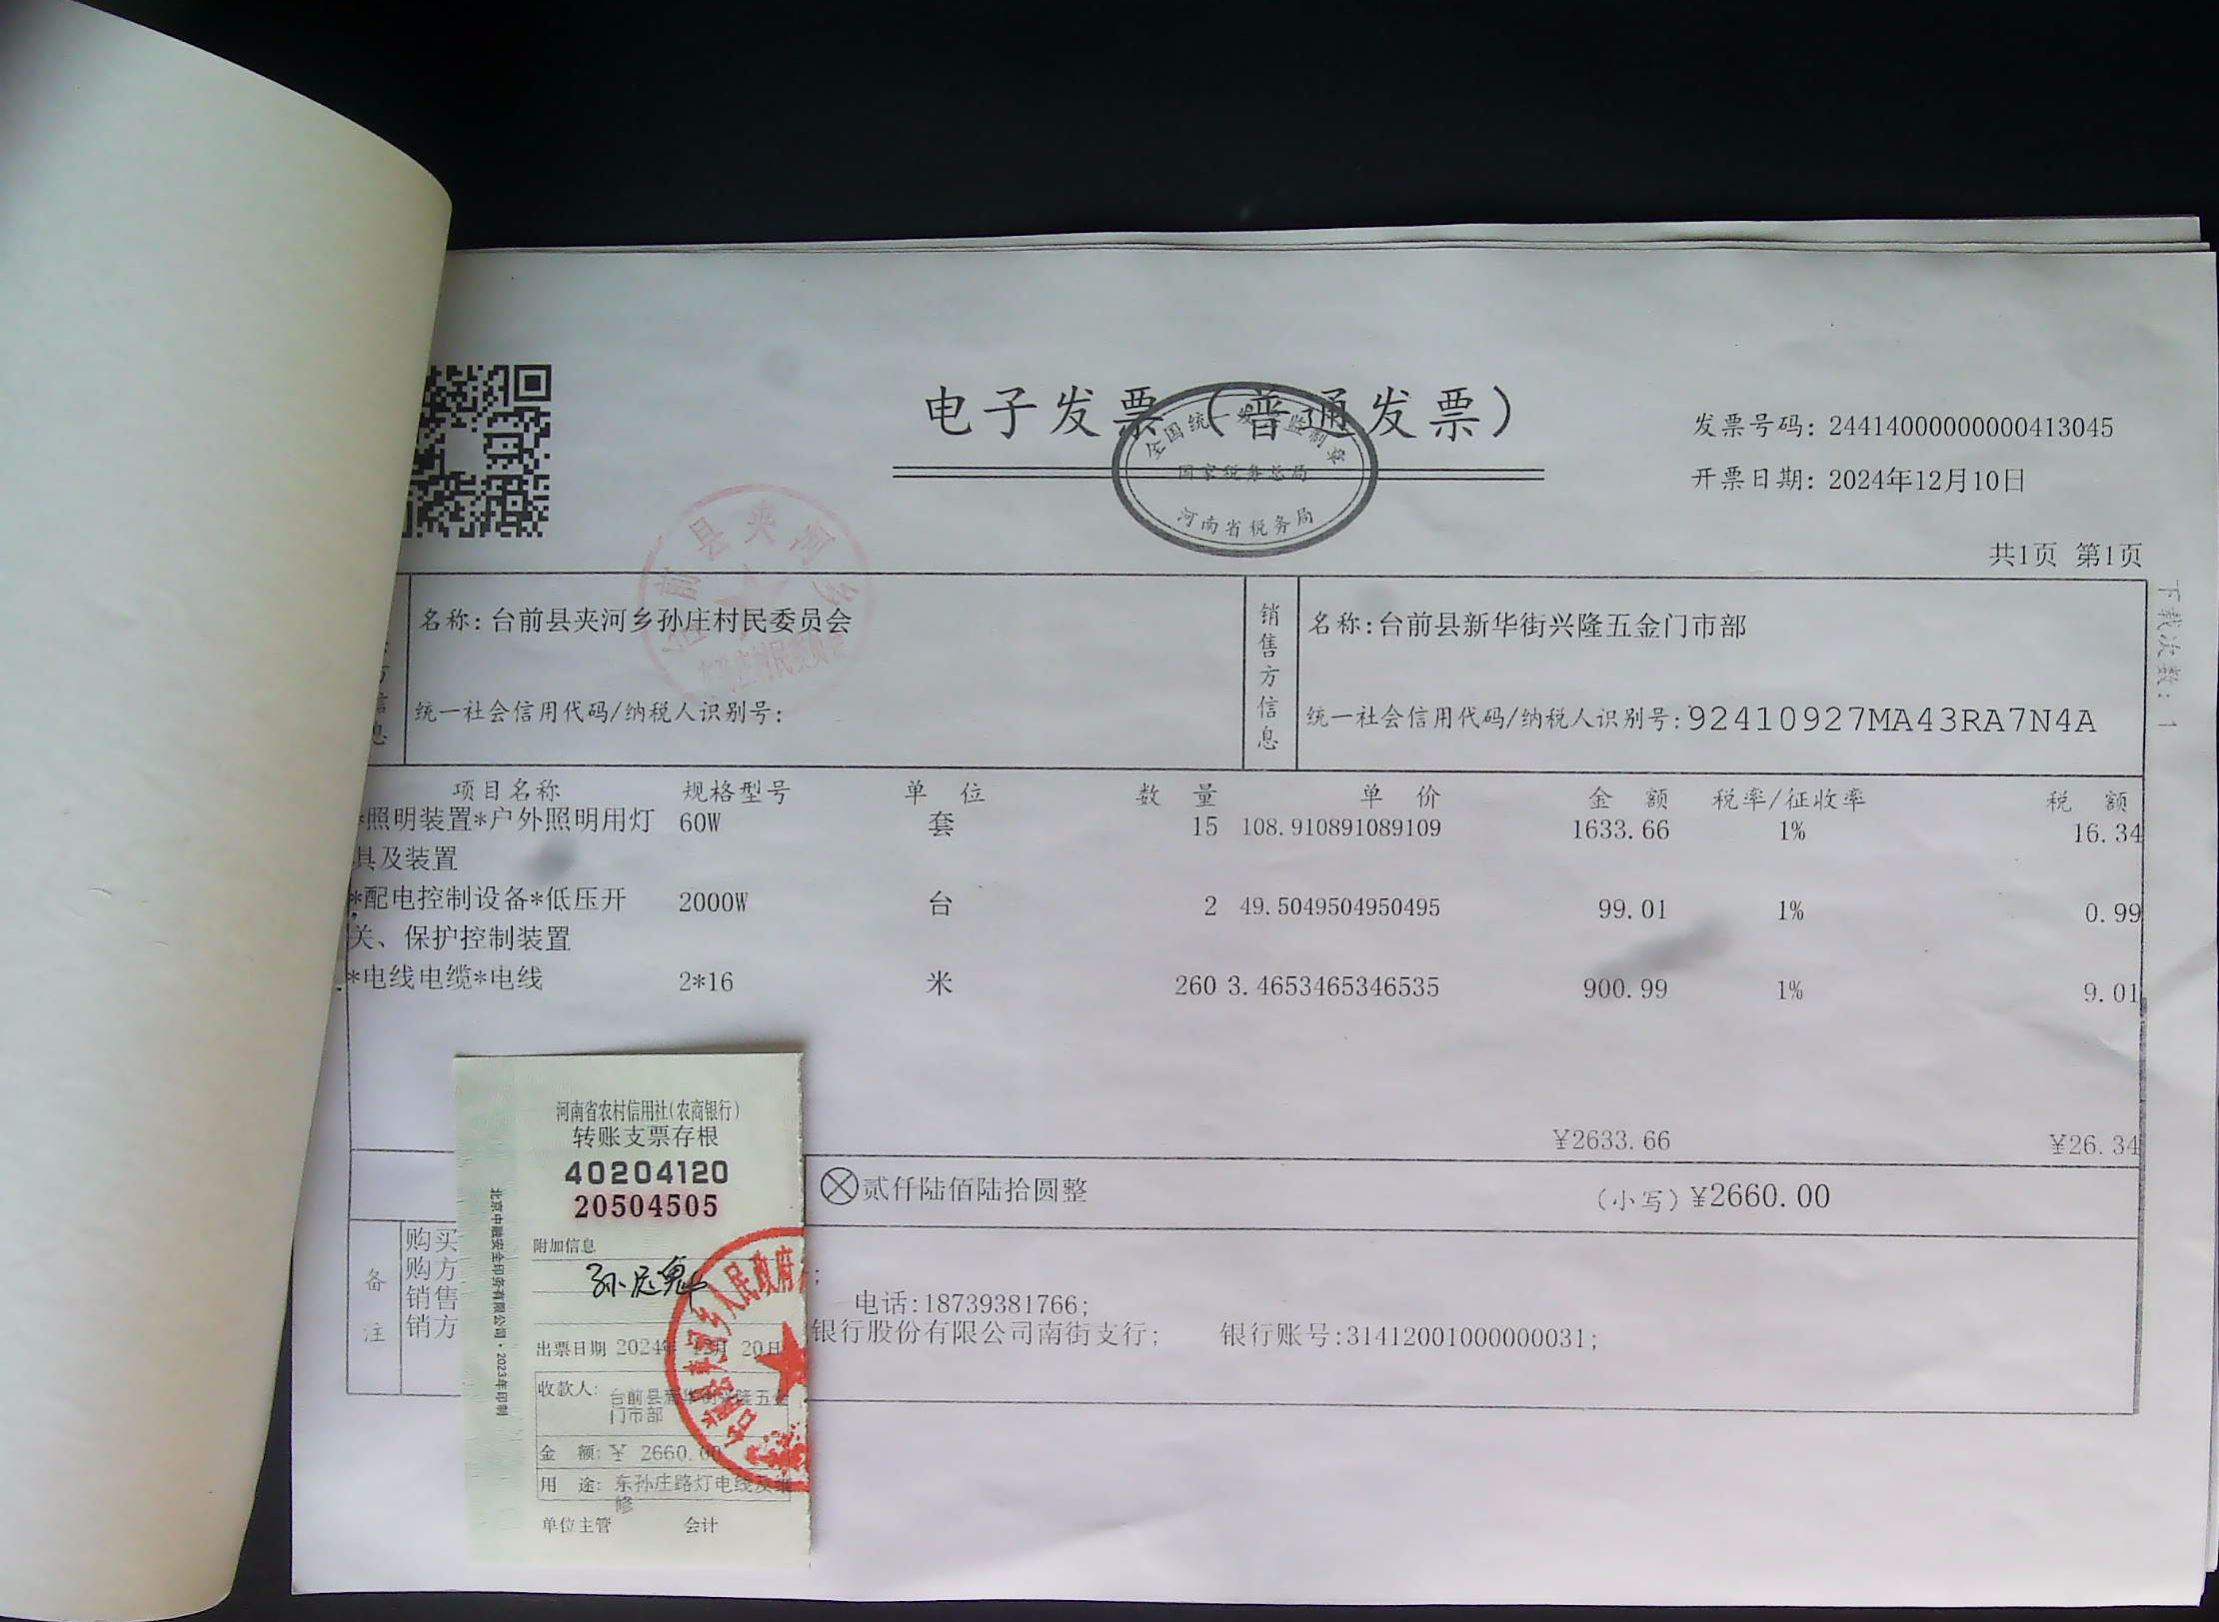 电子发票（普通发票）
全国统一发票监制章
国家税务总局
河南省税务局
发票号码：24414000000000413045
开票日期：2024年12月10日
共1页 第1页
下载次数：1
县夹河乡
名称：台前县夹河乡孙庄村民委员会
统一社会信用代码/纳税人识别号：
销售方信息
名称：台前县新华街兴隆五金门市部
统一社会信用代码/纳税人识别号：92410927MA43RA7N4A
项目名称 规格型号 单位 数量 单价 金额 税率/征收率 税额
*照明装置*户外照明用灯 60W 套 15 108.910891089109 1633.66 1% 16.34
具及装置
*配电控制设备*低压开 2000W 台 2 49.5049504950495 99.01 1% 0.99
关、保护控制装置
*电线电缆*电线 2*16 米 260 3.4653465346535 900.99 1% 9.01
¥2633.66 ¥26.34
ⓧ贰仟陆佰陆拾圆整 （小写）¥2660.00
备注
购买
购方
销售 电话:18739381766;
销方 银行股份有限公司南街支行; 银行账号:31412001000000031;
河南省农村信用社(农商银行)
转账支票存根
40204120
20504505
附加信息
出票日期 2024年 12月 20日
收款人: 台前县新华街兴隆五金
门市部
金 额: ¥ 2660.00
用 途: 东孙庄路灯电线及维
修
单位主管 会计
北京中融安全印务有限公司·2023年印制
夹河乡人民政府